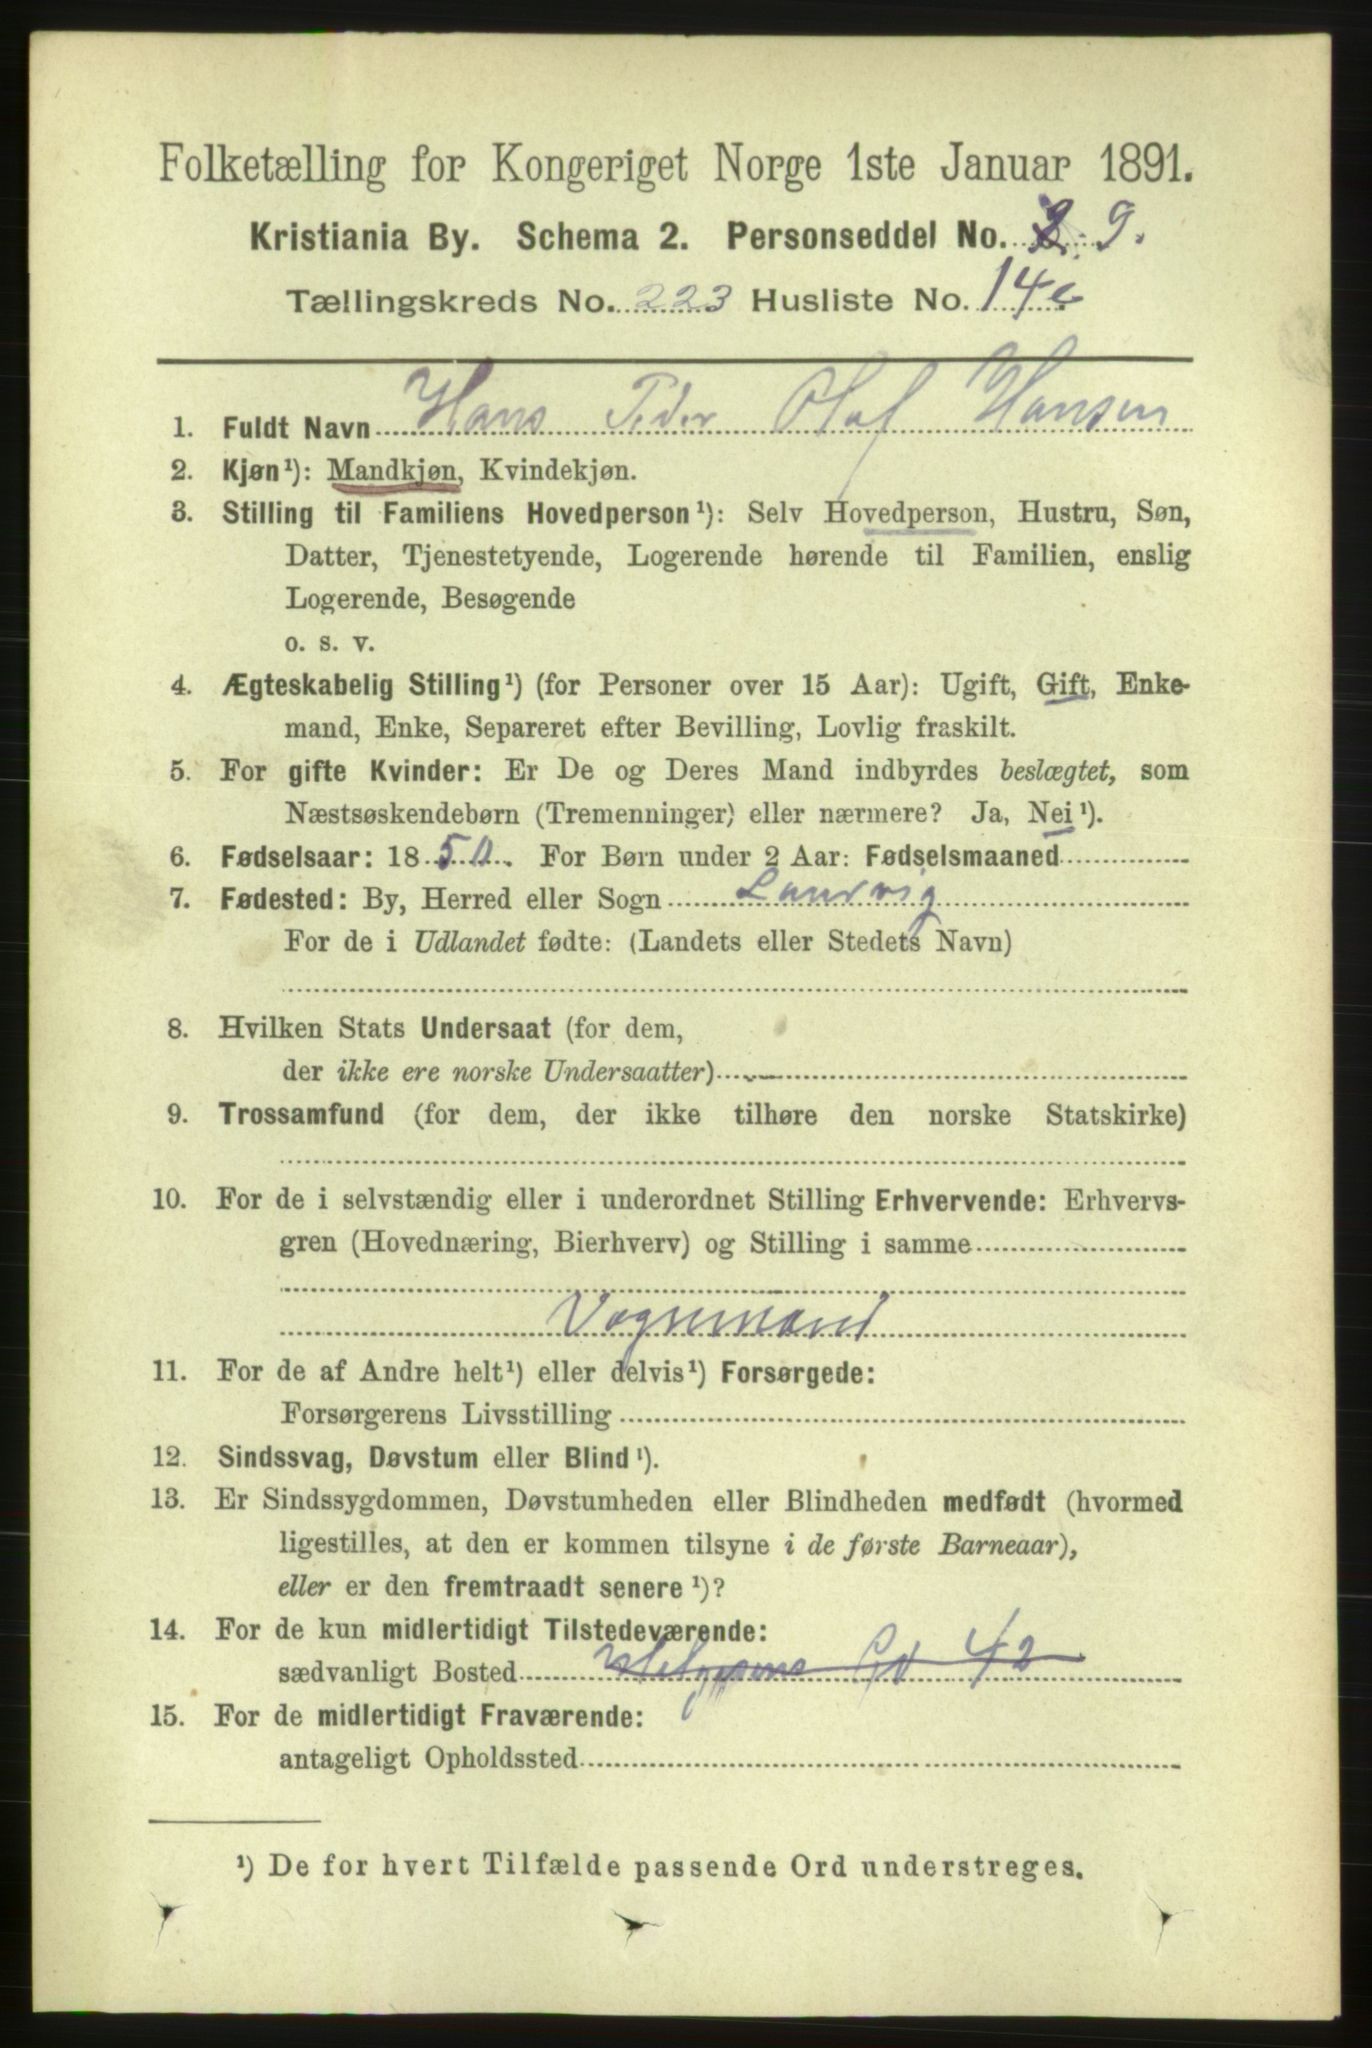 Folketælling for Kongeriget Norge 1ste Januar 1891.
Kristiania By. Schema 2. Personseddel No. 9.
Tællingskreds No. 223 Husliste No. 14c
1. Fuldt Navn Hans Peder Olaf Hansen
2. Kjøn¹): Mandkjøn, Kvindekjøn.
3. Stilling til Familiens Hovedperson¹): Selv Hovedperson, Hustru, Søn,
Datter, Tjenestetyende, Logerende hørende til Familien, enslig
Logerende, Besøgende
o. s. v.
4. Ægteskabelig Stilling¹) (for Personer over 15 Aar): Ugift, Gift, Enke-
mand, Enke, Separeret efter Bevilling, Lovlig fraskilt.
5. For gifte Kvinder: Er De og Deres Mand indbyrdes beslægtet, som
Næstsøskendebørn (Tremenninger) eller nærmere? Ja, Nei¹).
6. Fødselsaar: 1850. For Børn under 2 Aar: Fødselsmaaned
7. Fødested: By, Herred eller Sogn Laurvig
For de i Udlandet fødte: (Landets eller Stedets Navn)
8. Hvilken Stats Undersaat (for dem,
der ikke ere norske Undersaatter)
9. Trossamfund (for dem, der ikke tilhøre den norske Statskirke)
10. For de i selvstændig eller i underordnet Stilling Erhvervende: Erhvervs-
gren (Hovednæring, Bierhverv) og Stilling i samme
Vognmand
11. For de af Andre helt¹) eller delvis¹) Forsørgede:
Forsørgerens Livsstilling
12. Sindssvag, Døvstum eller Blind¹).
13. Er Sindssygdommen, Døvstumheden eller Blindheden medfødt (hvormed
ligestilles, at den er kommen tilsyne i de første Barneaar),
eller er den fremtraadt senere¹)?
14. For de kun midlertidigt Tilstedeværende:
sædvanligt Bosted Helgesens Gd 42
15. For de midlertidigt Fraværende:
antageligt Opholdssted
¹) De for hvert Tilfælde passende Ord understreges.